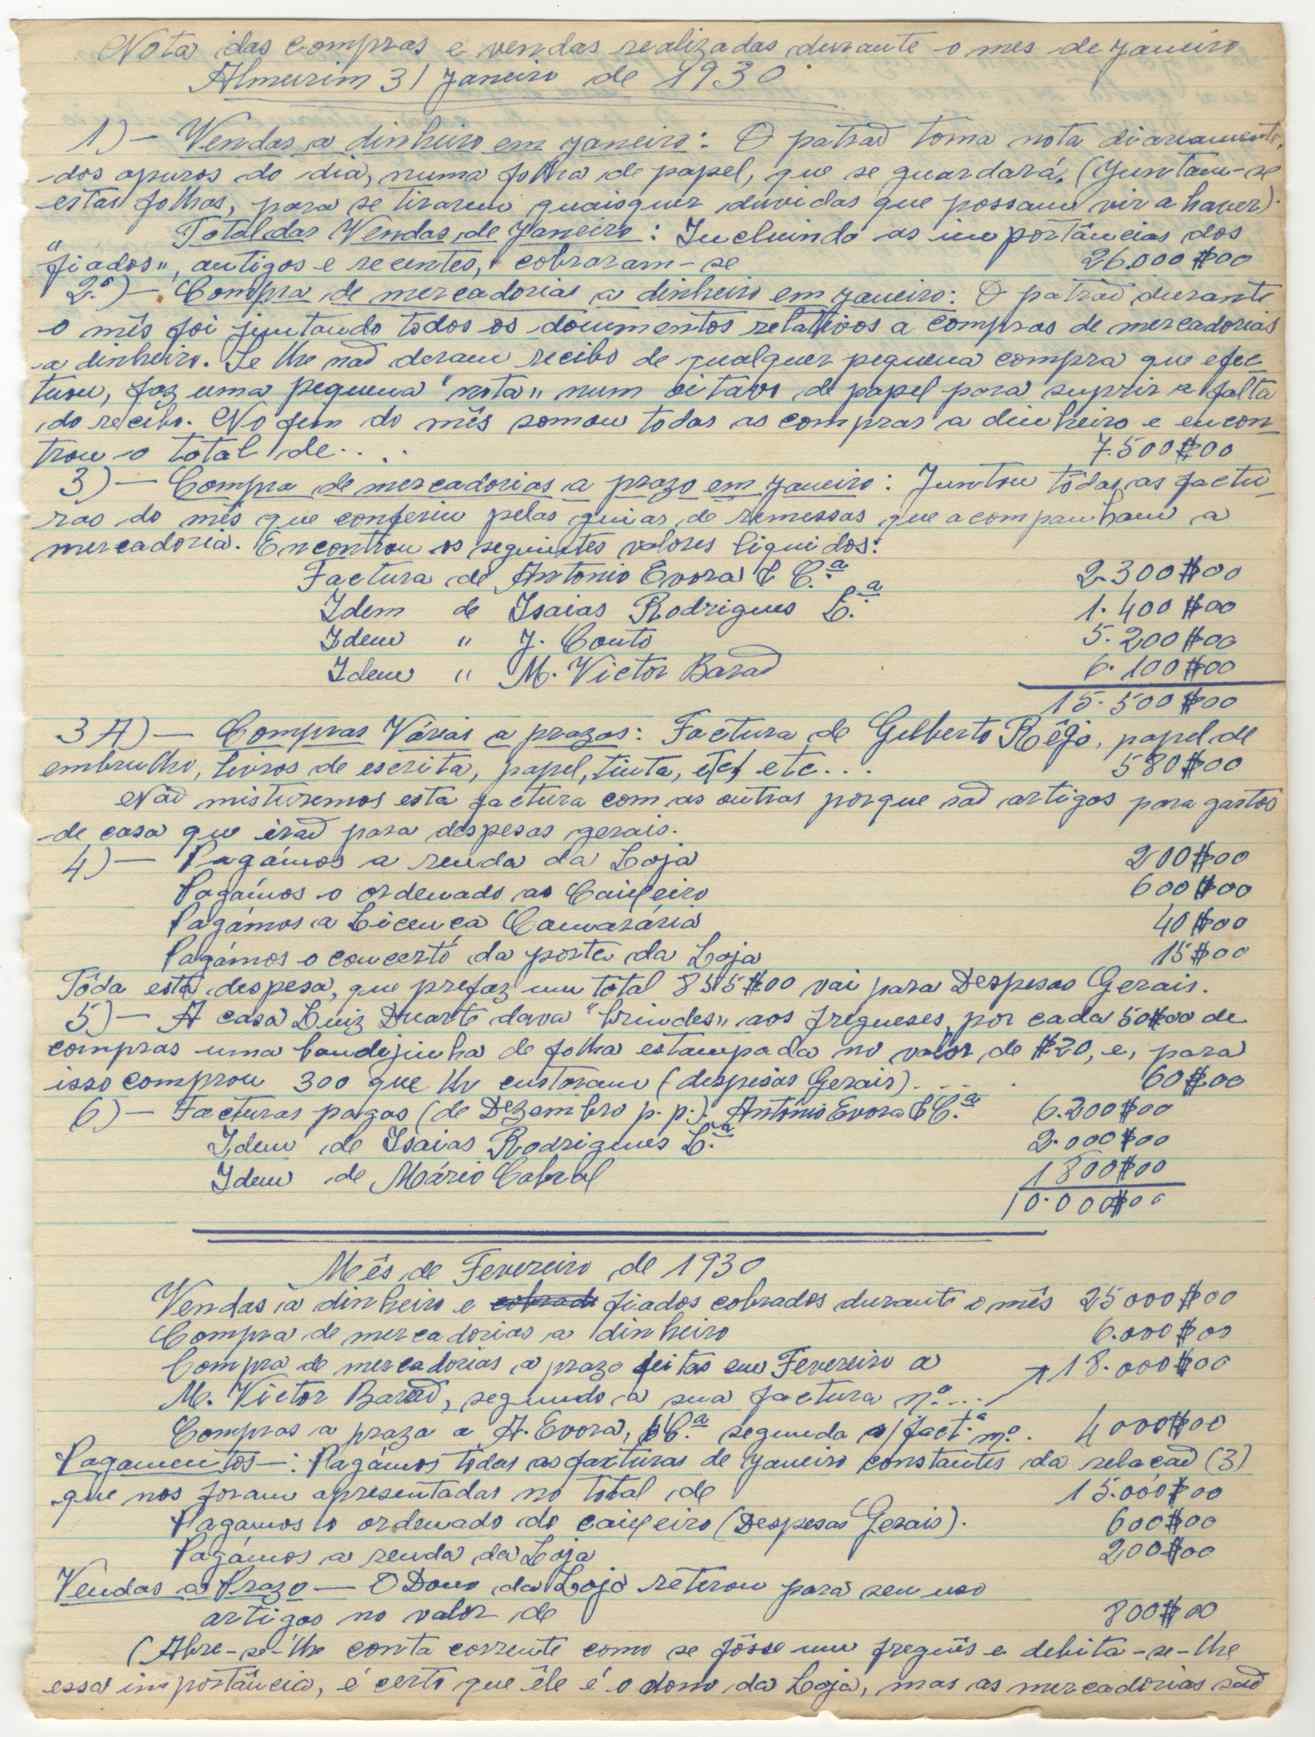 Nota das compras e vendas realizadas durante o mes de Janeiro
Almeirim 31 Janeiro de 1930.
1) — Vendas a dinheiro em Janeiro: O patrão toma nota diariamente,
dos apuros do dia, numa folha de papel, que se guardará. (Juntam-se
estas folhas, para se tirarem quaisquer duvidas que possam vir a haver).
Total das Vendas de Janeiro: Incluindo as importâncias dos
"fiados", antigos e recentes, cobraram-se 26.000$00
2.º) — Compra de mercadorias a dinheiro em Janeiro: O patrão durante
o mês foi juntando todos os documentos relativos a compras de mercadorias
a dinheiro. Se lhe não deram recibo de qualquer pequena compra que efec-
tuou, faz uma pequena "nota" num oitavo de papel para suprir a falta
do recibo. No fim do mês somou todas as compras a dinheiro e encon-
trou o total de.... 7.500$00
3) — Compra de mercadorias a prazo em Janeiro: Juntou tôdas as factu-
ras do mês que conferiu pelas guias de remessas que acompanham a
mercadoria. Encontrou os seguintes valores liquidos:
Factura de Antonio Evora & C.ª 2.300$00
Idem de Isaias Rodrigues L.ª 1.400$00
Idem " J. Couto 5.200$00
Idem " M. Victor Barão 6.100$00
15.500$00
3 A) — Compras Várias a prazos: Factura de Gilberto Rêgo, papel de
embrulho, livros de escrita, papel, tinta, etc, etc... 580$00
Não misturemos esta factura com as outras porque são artigos para gastos
de casa que irão para despesas gerais.
4) — Pagámos a renda da Loja 200$00
Pagámos o ordenado ao Caixeiro 600$00
Pagámos a Licença Camarária 40$00
Pagámos o concertó da porta da Loja 15$00
Tôda esta despesa, que prefaz um total 855$00 vai para Despesas Gerais.
5) — A casa Luiz Duarte dava "brindes" aos fregueses, por cada 50$00 de
compras uma bandejinha de folha estampada no valor de $20, e, para
isso comprou 300 que lhe custaram (despesas Gerais).... 60$00
6) — Facturas pagas (de Dezembro p. p.): António Evora & C.ª 6.200$00
Idem de Isaias Rodrigues L.ª 2.000$00
Idem de Mário Cabral 1800$00
10.000$00
Mês de Fevereiro de 1930
Vendas a dinheiro e cobrado fiados cobrados durante o mês 25000$00
Compra de mercadorias a dinheiro 6.000$00
Compra de mercadorias a prazo feitas em Fevereiro a 18.000$00
M. Victor Barão, segundo a sua factura n.º...
Compras a praza a A. Evora, & C.ª segunda s/ fact.ª n.º. 4000$00
Pagamentos —: Pagámos tôdas as facturas de Janeiro constantes da relacão (3)
que nos foram apresentadas no total de 15.000$00
Pagamos o ordenado do caixeiro (Despesas Gerais). 600$00
Pagámos a renda da Loja 200$00
Vendas a Prazo — O Dono da Loja retirou para seu uso
artigos no valor de 800$00
(Abre-se-lhe conta corrente como se fôsse um freguês e debita-se-lhe
essa importância, é certo que êle é o dono da Loja, mas as mercadorias são